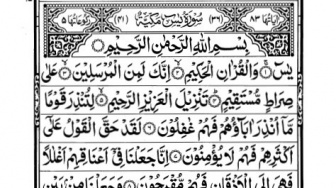 اٰیاتها ۸۳ (۳۶) سُوْرَةُ يٰسٓ مَكِّيَّةٌ (۴۱) رکوعاتها ۵
بِسْمِ اللّٰهِ الرَّحْمٰنِ الرَّحِيْمِ
يٰسٓ وَالْقُرْاٰنِ الْحَكِيْمِ اِنَّكَ لَمِنَ الْمُرْسَلِيْنَ عَلٰى
صِرَاطٍ مُّسْتَقِيْمٍ تَنْزِيْلَ الْعَزِيْزِ الرَّحِيْمِ لِتُنْذِرَ قَوْمًا
مَّاۤ اُنْذِرَ اٰبَآؤُهُمْ فَهُمْ غٰفِلُوْنَ لَقَدْ حَقَّ الْقَوْلُ عَلٰۤى
اَكْثَرِهِمْ فَهُمْ لَا يُؤْمِنُوْنَ اِنَّا جَعَلْنَا فِيْۤ اَعْنَاقِهِمْ اَغْلٰلًا
فَهِيَ اِلَى الْاَذْقَانِ فَهُمْ مُّقْمَحُوْنَ وَجَعَلْنَا مِنْۢ بَيْنِ